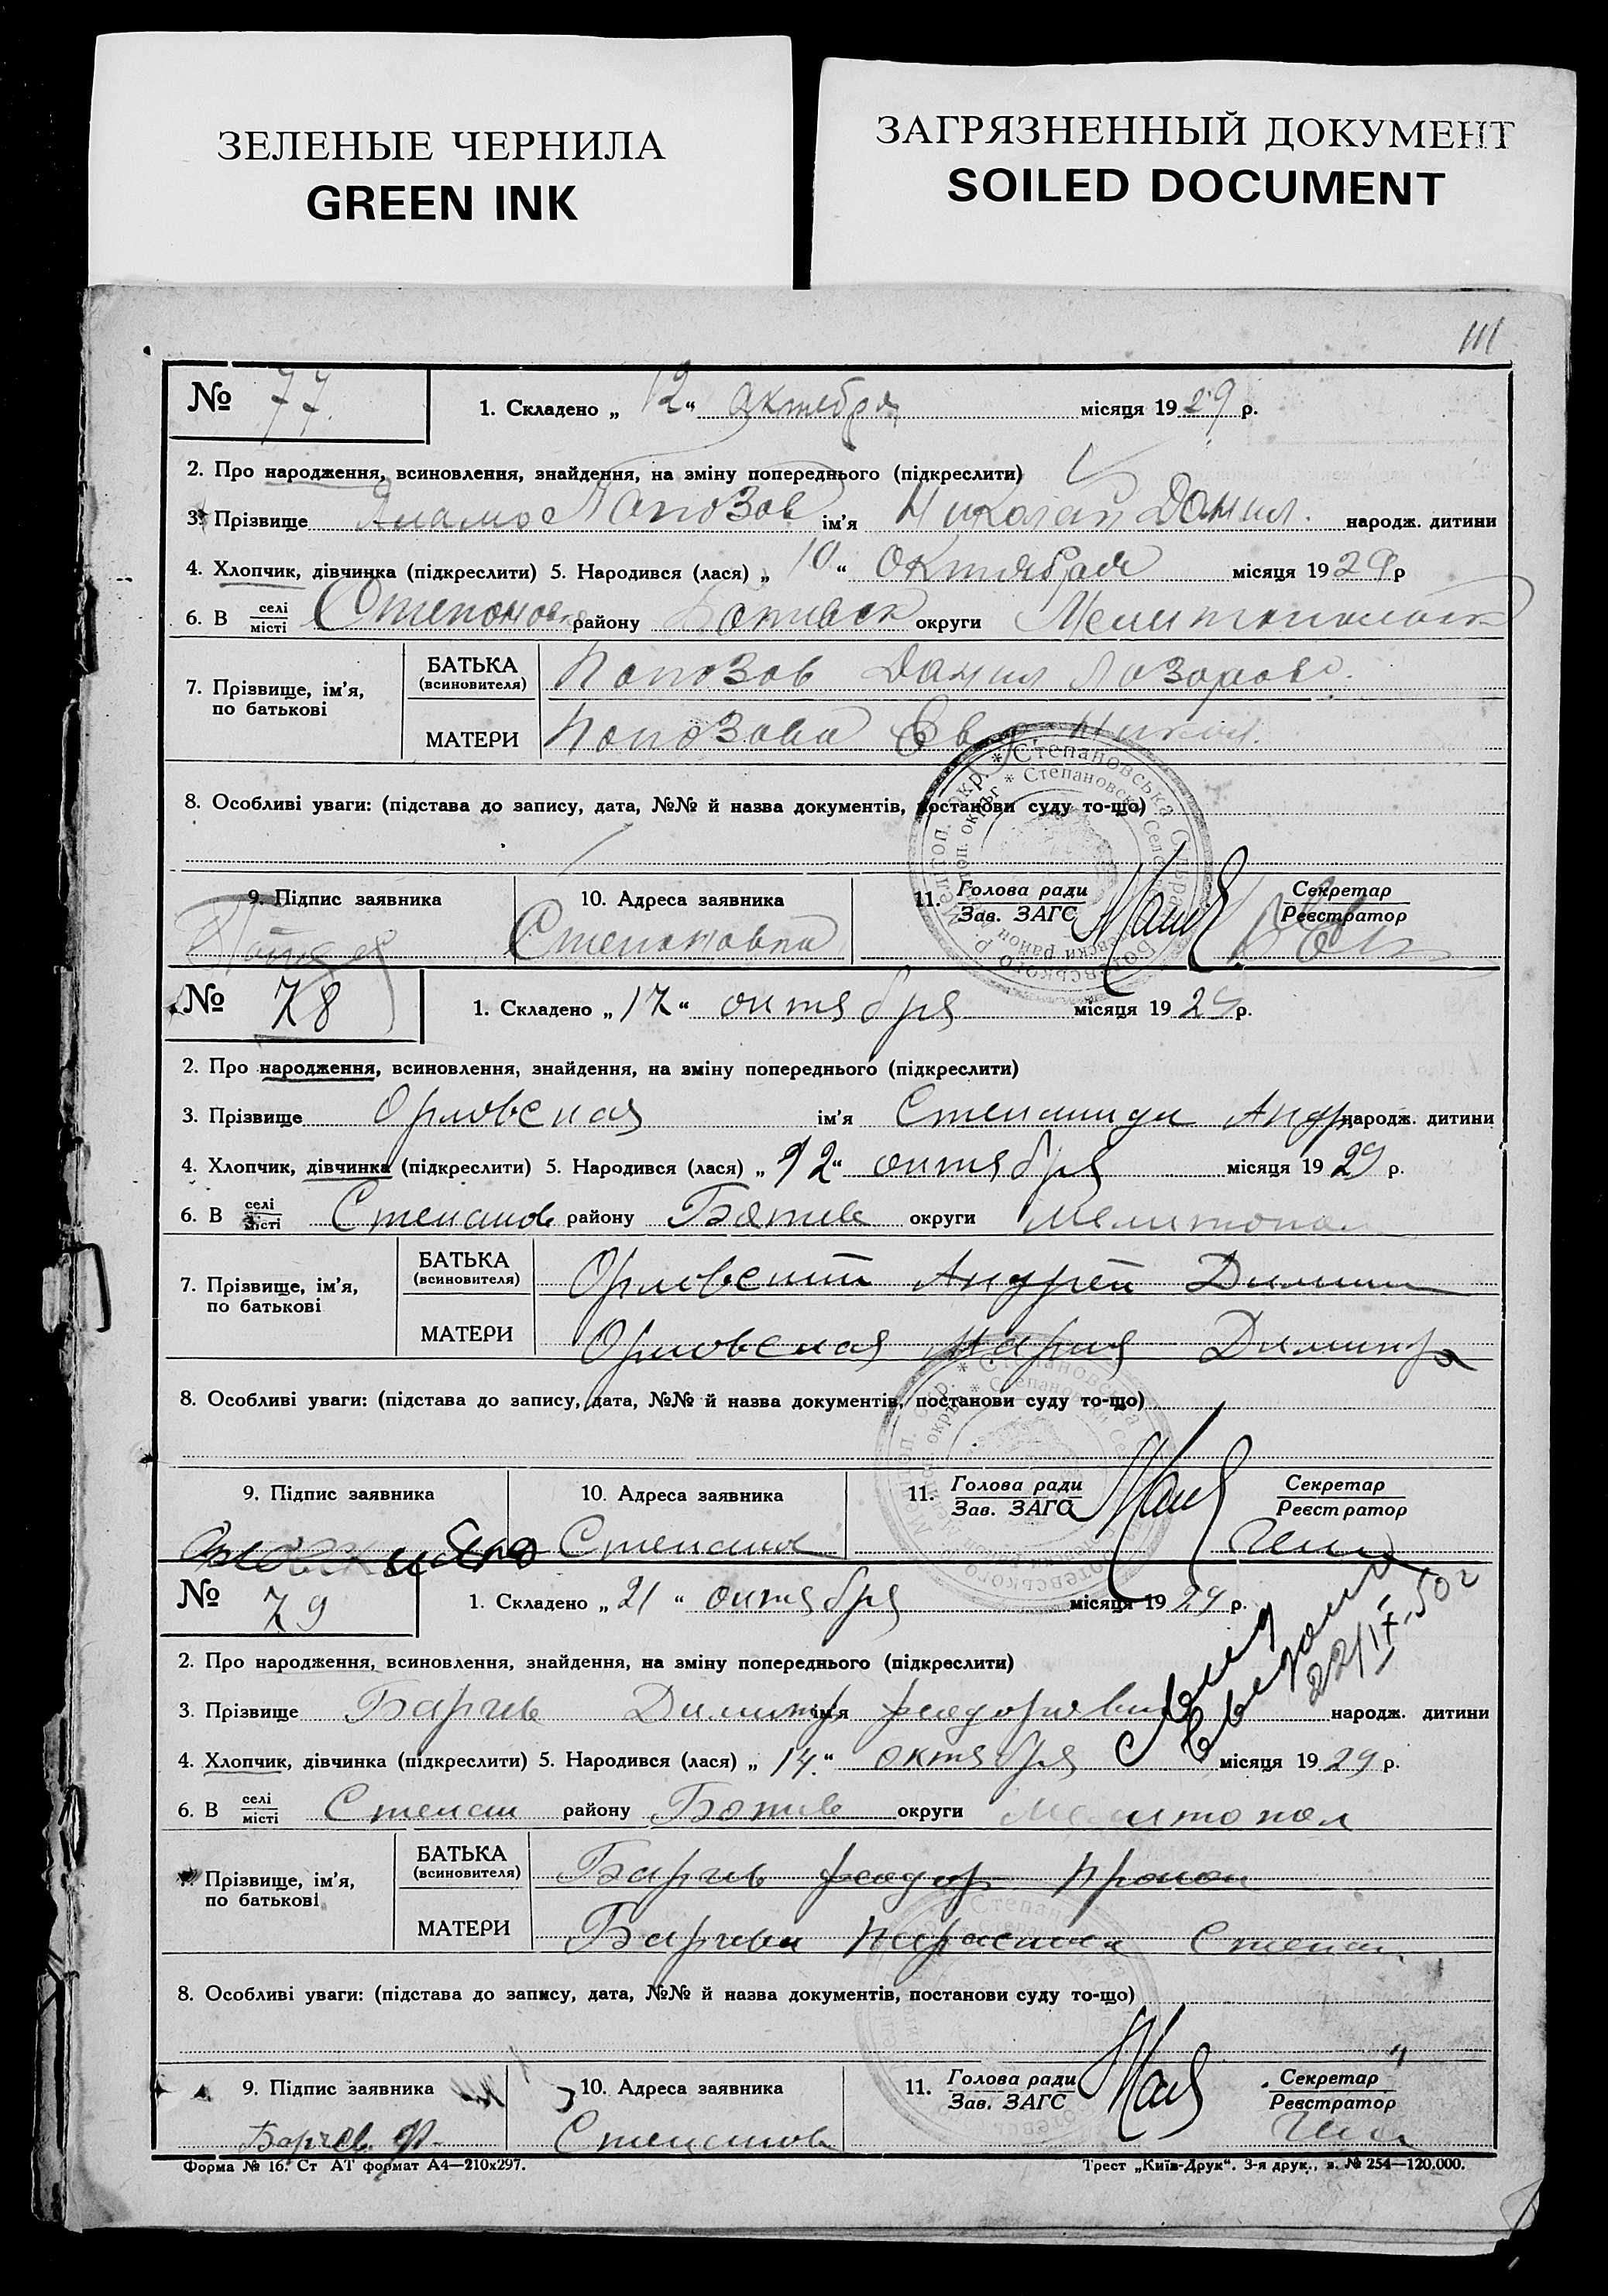 ЗЕЛЕНЫЕ ЧЕРНИЛА
GREEN INK
ЗАГРЯЗНЕННЫЙ ДОКУМЕНТ
SOILED DOCUMENT
111
№ 77. 1. Складено „12“ октебря місяця 1929 р.
2. Про народження, всиновлення, знайдення, на зміну попереднього (підкреслити)
3. Прізвище Попозов ім'я Николай Данил. народж. дитини
4. Хлопчик, дівчинка (підкреслити) 5. Народився (лася) „10“ Октября місяця 1929 р
6. В селі/місті Степоновк району округи
7. Прізвище, ім'я, по батькові
БАТЬКА (всиновителя) Попозов Данил Лозоров.
МАТЕРИ Попозова Евд Никол.
8. Особливі уваги: (підстава до запису, дата, №№ й назва документів, постанови суду то-що)
9. Підпис заявника 10. Адреса заявника 11. Голова ради/Зав. ЗАГС Секретар/Реєстратор
Степоновка
№ 78 1. Складено „17“ октября місяця 1929 р.
2. Про народження, всиновлення, знайдення, на зміну попереднього (підкреслити)
3. Прізвище Орловская ім'я Степанида Андр народж. дитини
4. Хлопчик, дівчинка (підкреслити) 5. Народився (лася) „12“ октября місяця 1929 р.
6. В селі/місті Степанов району Ботиев округи Мелитопол
7. Прізвище, ім'я, по батькові
БАТЬКА (всиновителя) Орловский Андрей Димит
МАТЕРИ Орловская Мария Димитр
8. Особливі уваги: (підстава до запису, дата, №№ й назва документів, постанови суду то-що)
9. Підпис заявника 10. Адреса заявника 11. Голова ради/Зав. ЗАГС Секретар/Реєстратор
Степанов
№ 79 1. Складено „21“ октября місяця 1929 р.
22/IX-50г
2. Про народження, всиновлення, знайдення, на зміну попереднього (підкреслити)
3. Прізвище Барчев Димитр ім'я Феодорович народж. дитини
4. Хлопчик, дівчинка (підкреслити) 5. Народився (лася) „14.“ октября місяця 1929 р.
6. В селі/місті Степан району Ботиев округи Мелитопол
7. Прізвище, ім'я, по батькові
БАТЬКА (всиновителя) Барчев Феодор Прокоп
МАТЕРИ Барчева Параскева Степан.
8. Особливі уваги: (підстава до запису, дата, №№ й назва документів, постанови суду то-що)
9. Підпис заявника 10. Адреса заявника 11. Голова ради/Зав. ЗАГС Секретар/Реєстратор
Барчев Ф. Степанов
Форма № 16. Ст АТ формат А4—210х297. Трест „Київ-Друк“. 3-я друк., з. № 254—120.000.